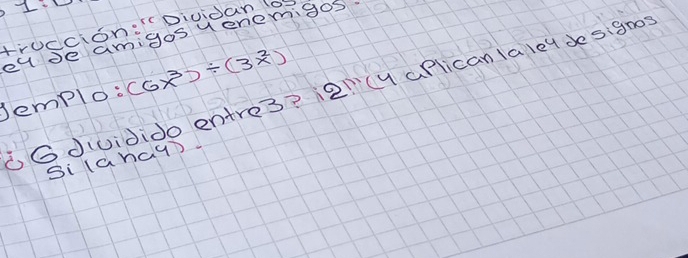 trucción: "Dividan los
ey de amigos y enemigos.
jemplo: (6x³) ÷ (3x²)
¿6 dividido entre 3? ¡2!" (y aplican la ley de signos
si la hay).